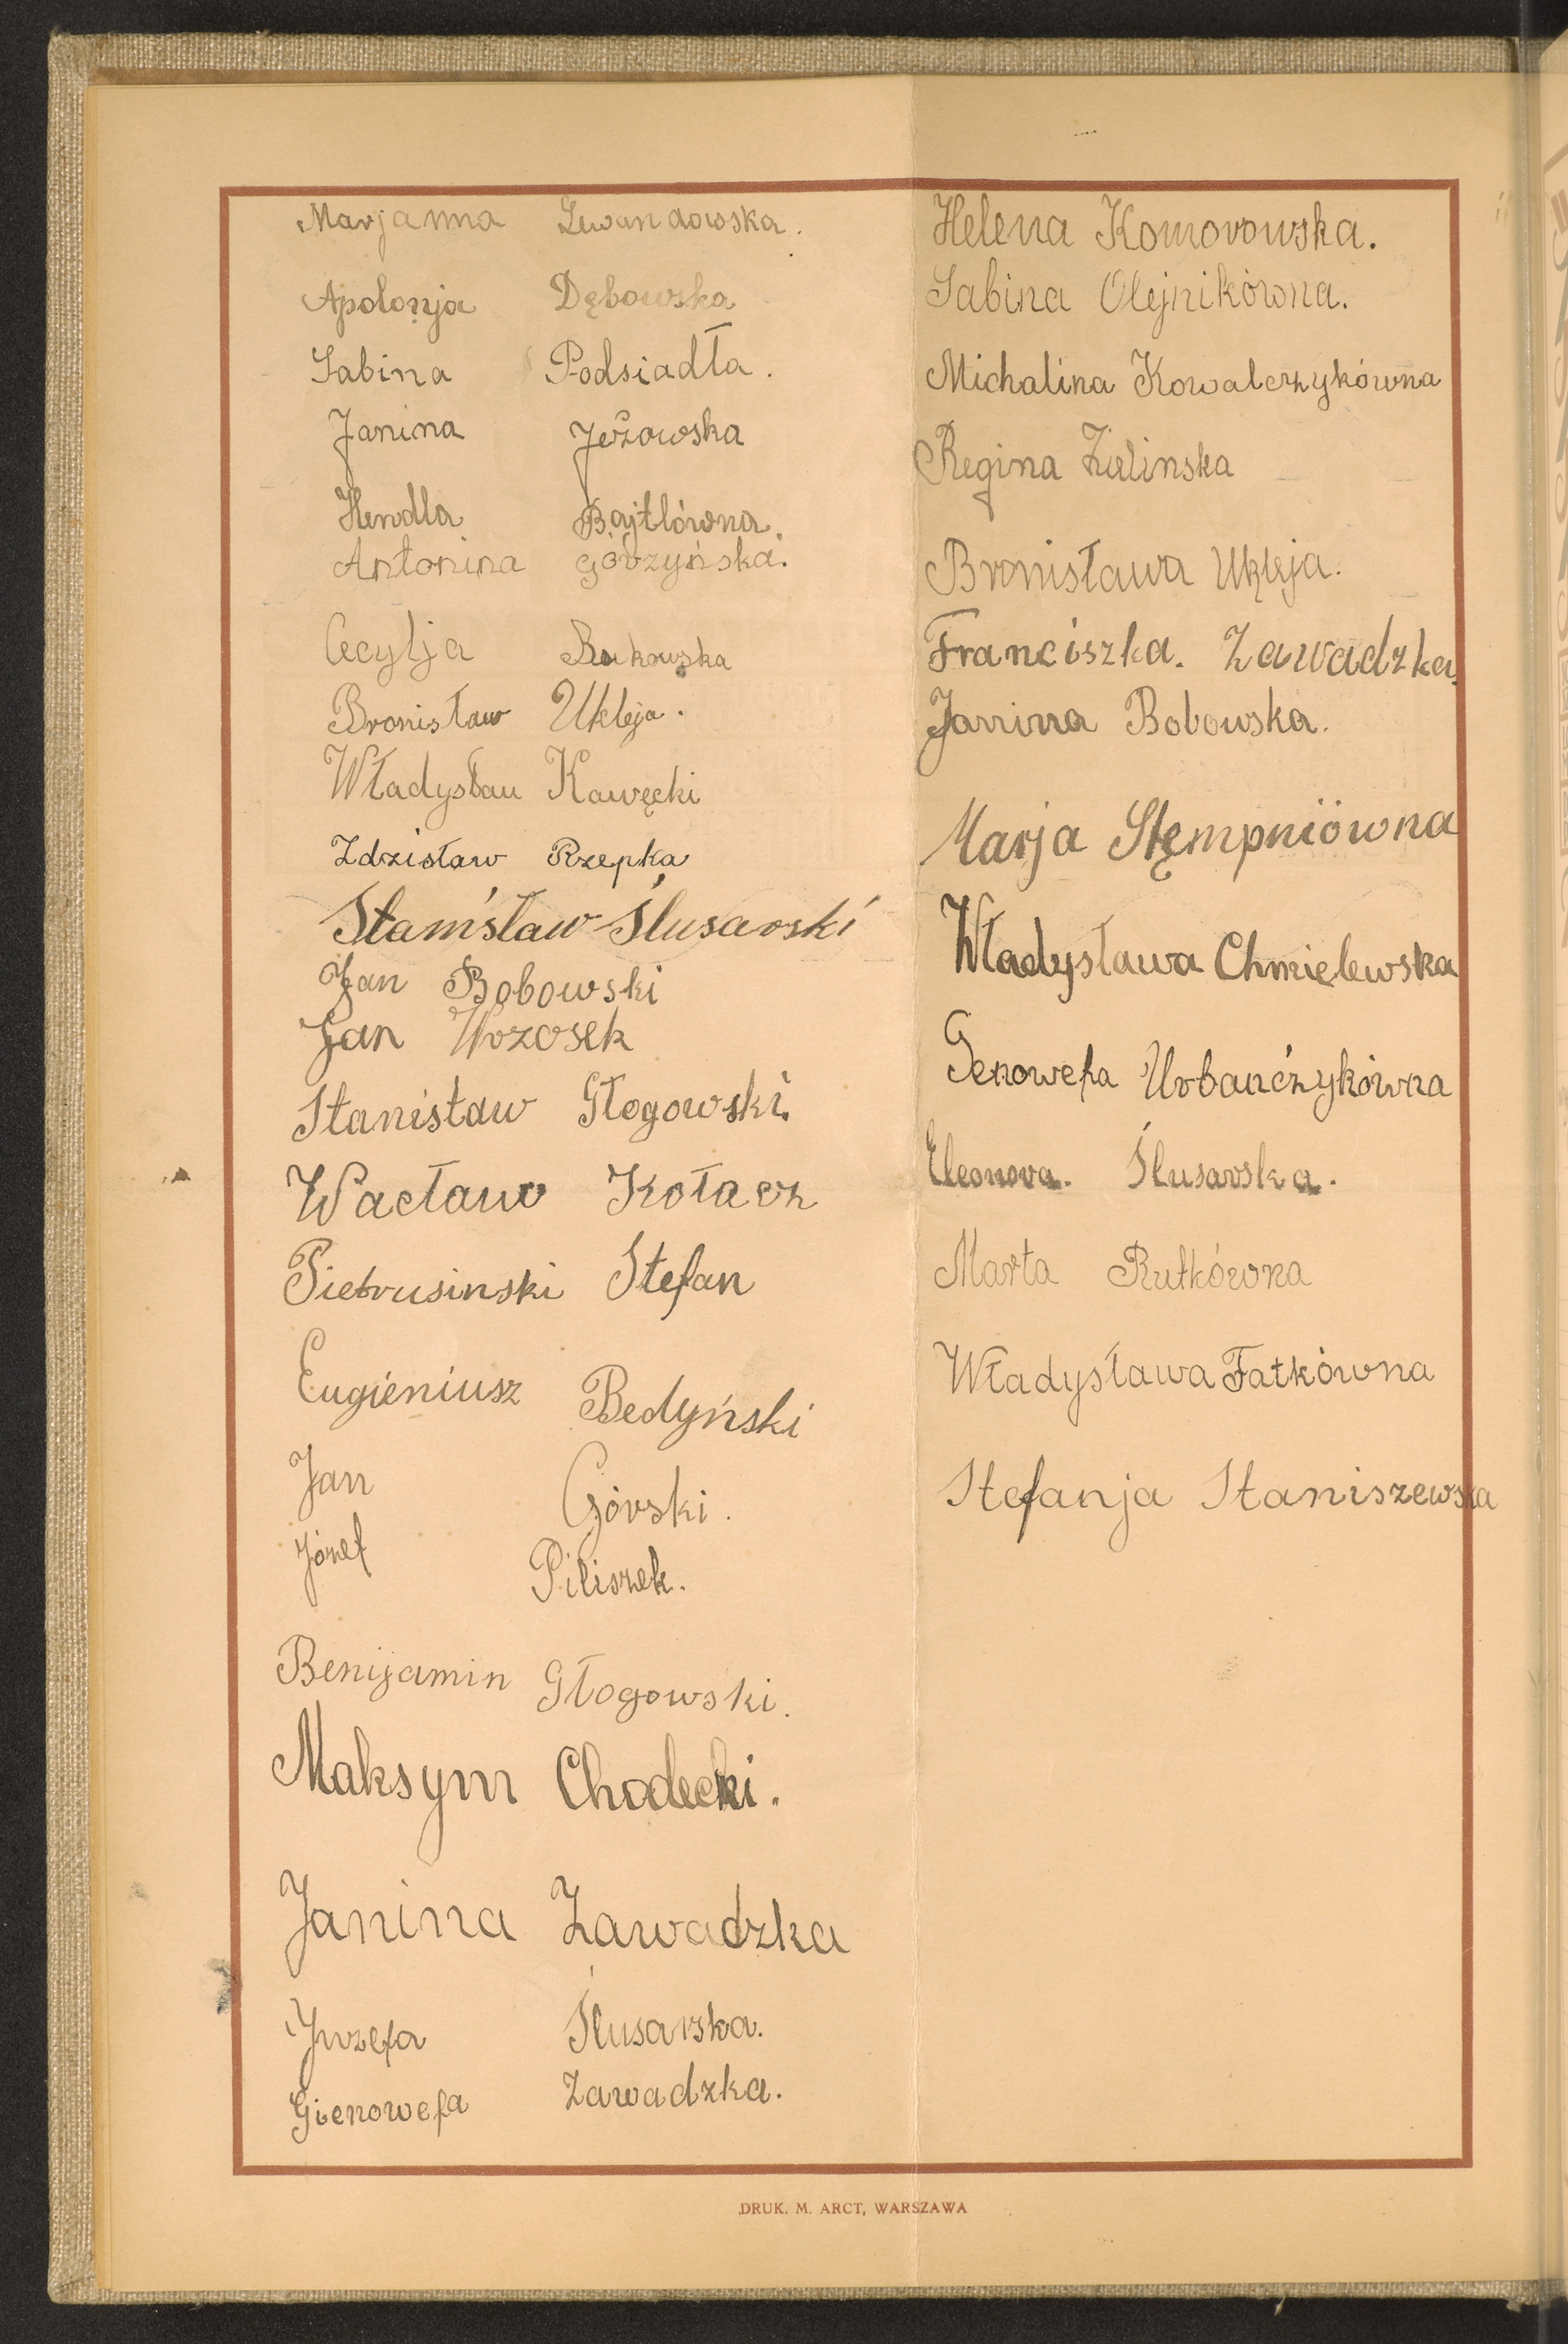 Marjanna Lewandowska.
Apolonja Dębowska
Sabina Podsiadła.
Janina Jeżowska
Hendla Bajtlówna.
Antonina Górzyńska.
Cecylja Bukowska
Bronisław Ukleja.
Władysław Kawęcki
Zdzisław Rzepka
Stanisław Ślusarski
Jan Bobowski
Jan Wrzosek
Stanisław Głogowski.
Wacław Kołacz
Pietrusinski Stefan
Eugieniusz Bedyński
Jan Górski.
Józef Piliszek.
Benijamin Głogowski.
Maksym Chodecki.
Janina Zawadzka
Juzefa Ślusarska.
Gienowefa Zawadzka.
Helena Komorowska.
Sabina Olejnikówna.
Michalina Kowalczykówna
Regina Zielinska
Bronisława Ukleja.
Franciszka. Zawadzka.
Janina Bobowska.
Marja Stępmpniówna
Władysława Chmielewska
Genowefa Urbańczykówna
Eleonora. Ślusarska.
Marta Rutkówna
Władysława Fatkówna
Stefanja Staniszewska
DRUK. M. ARCT, WARSZAWA